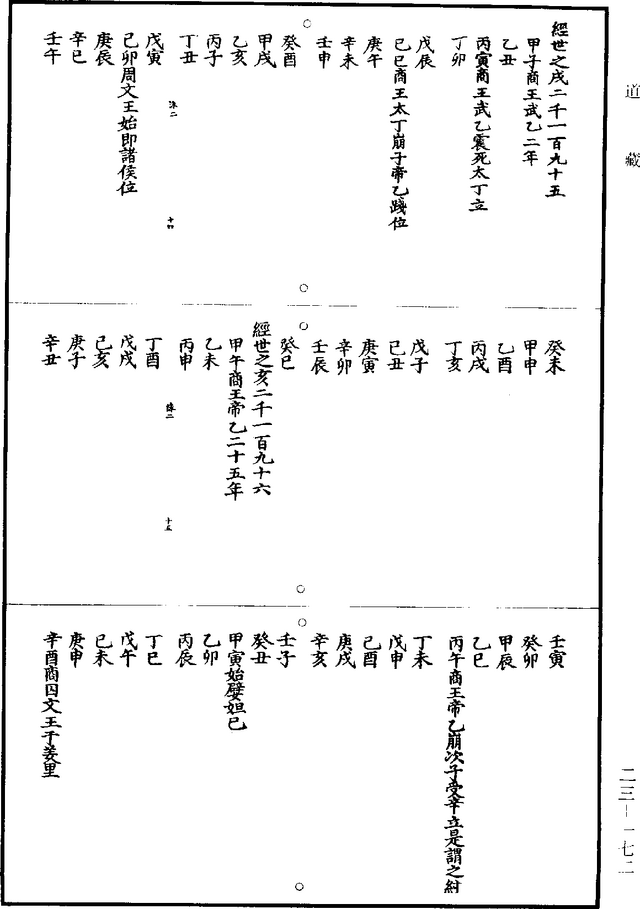 道藏
經世之戌二千一百九十五
甲子商王武乙二年
乙丑
丙寅商王武乙震死太丁立
丁卯
戊辰
己巳商王太丁崩子帝乙踐位
庚午
辛未
壬申
癸酉
甲戌
乙亥
丙子
丁丑
十四
戊寅
己卯周文王始即諸侯位
庚辰
辛巳
壬午
癸未
甲申
乙酉
丙戌
丁亥
戊子
己丑
庚寅
辛卯
壬辰
癸巳
經世之亥二千一百九十六
甲午商王帝乙二十五年
乙未
丙申
十五
丁酉
戊戌
己亥
庚子
辛丑
壬寅
癸卯
甲辰
乙巳
丙午商王帝乙崩次子受辛立是謂之紂
丁未
戊申
己酉
庚戌
辛亥
壬子
癸丑
甲寅始嬖妲己
乙卯
丙辰
丁巳
戊午
己未
庚申
辛酉商囚文王于羑里
二三—一七二